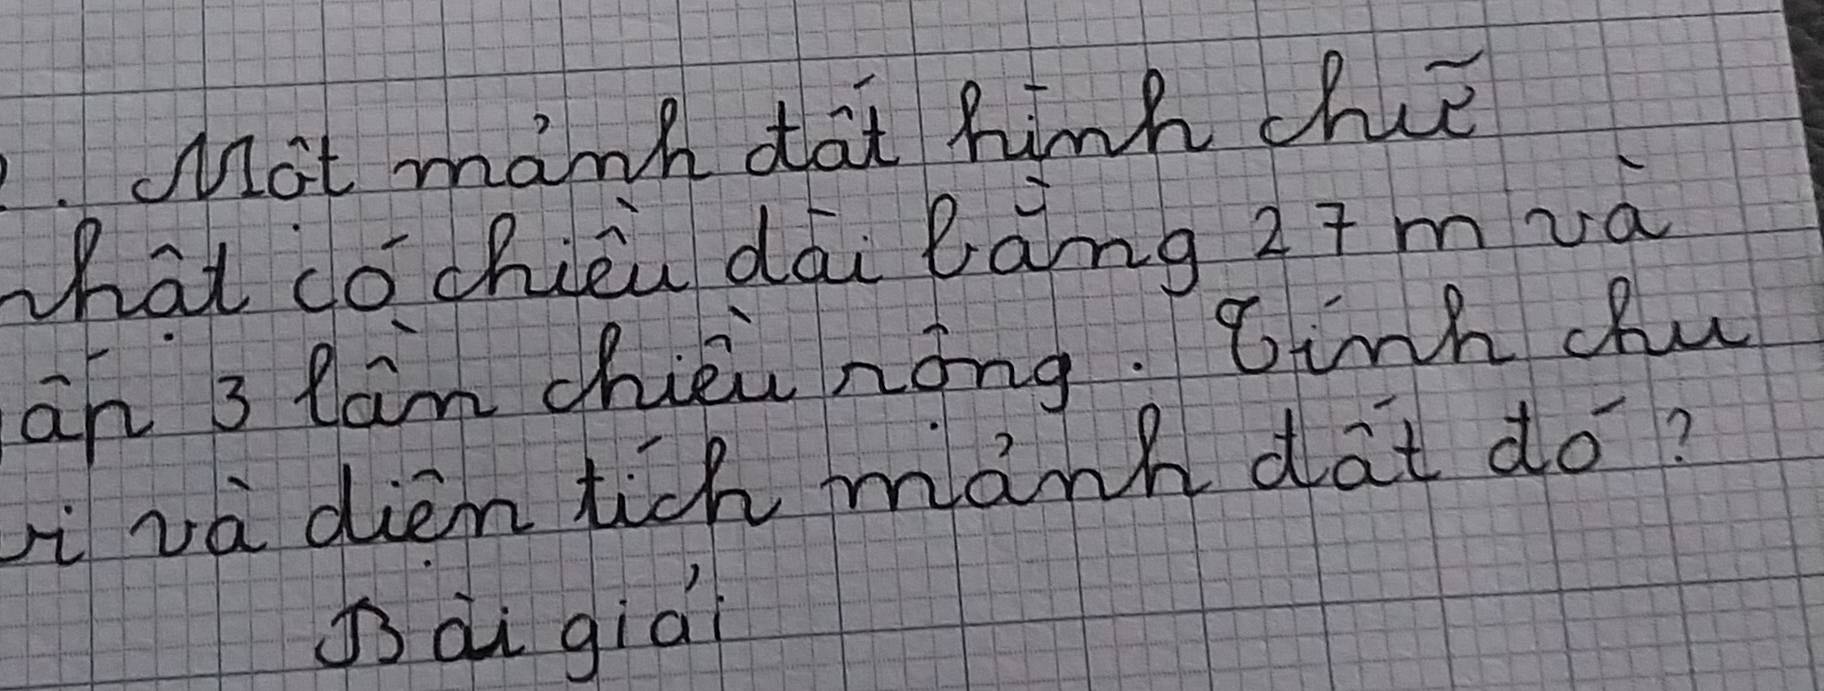 . Một mảnh đất hình chữ
nhật có chiều dài bằng 27 m và
ấp 3 lần chiều rộng. Tính chu
vi và diện tích mảnh đất đó?
Bài giải